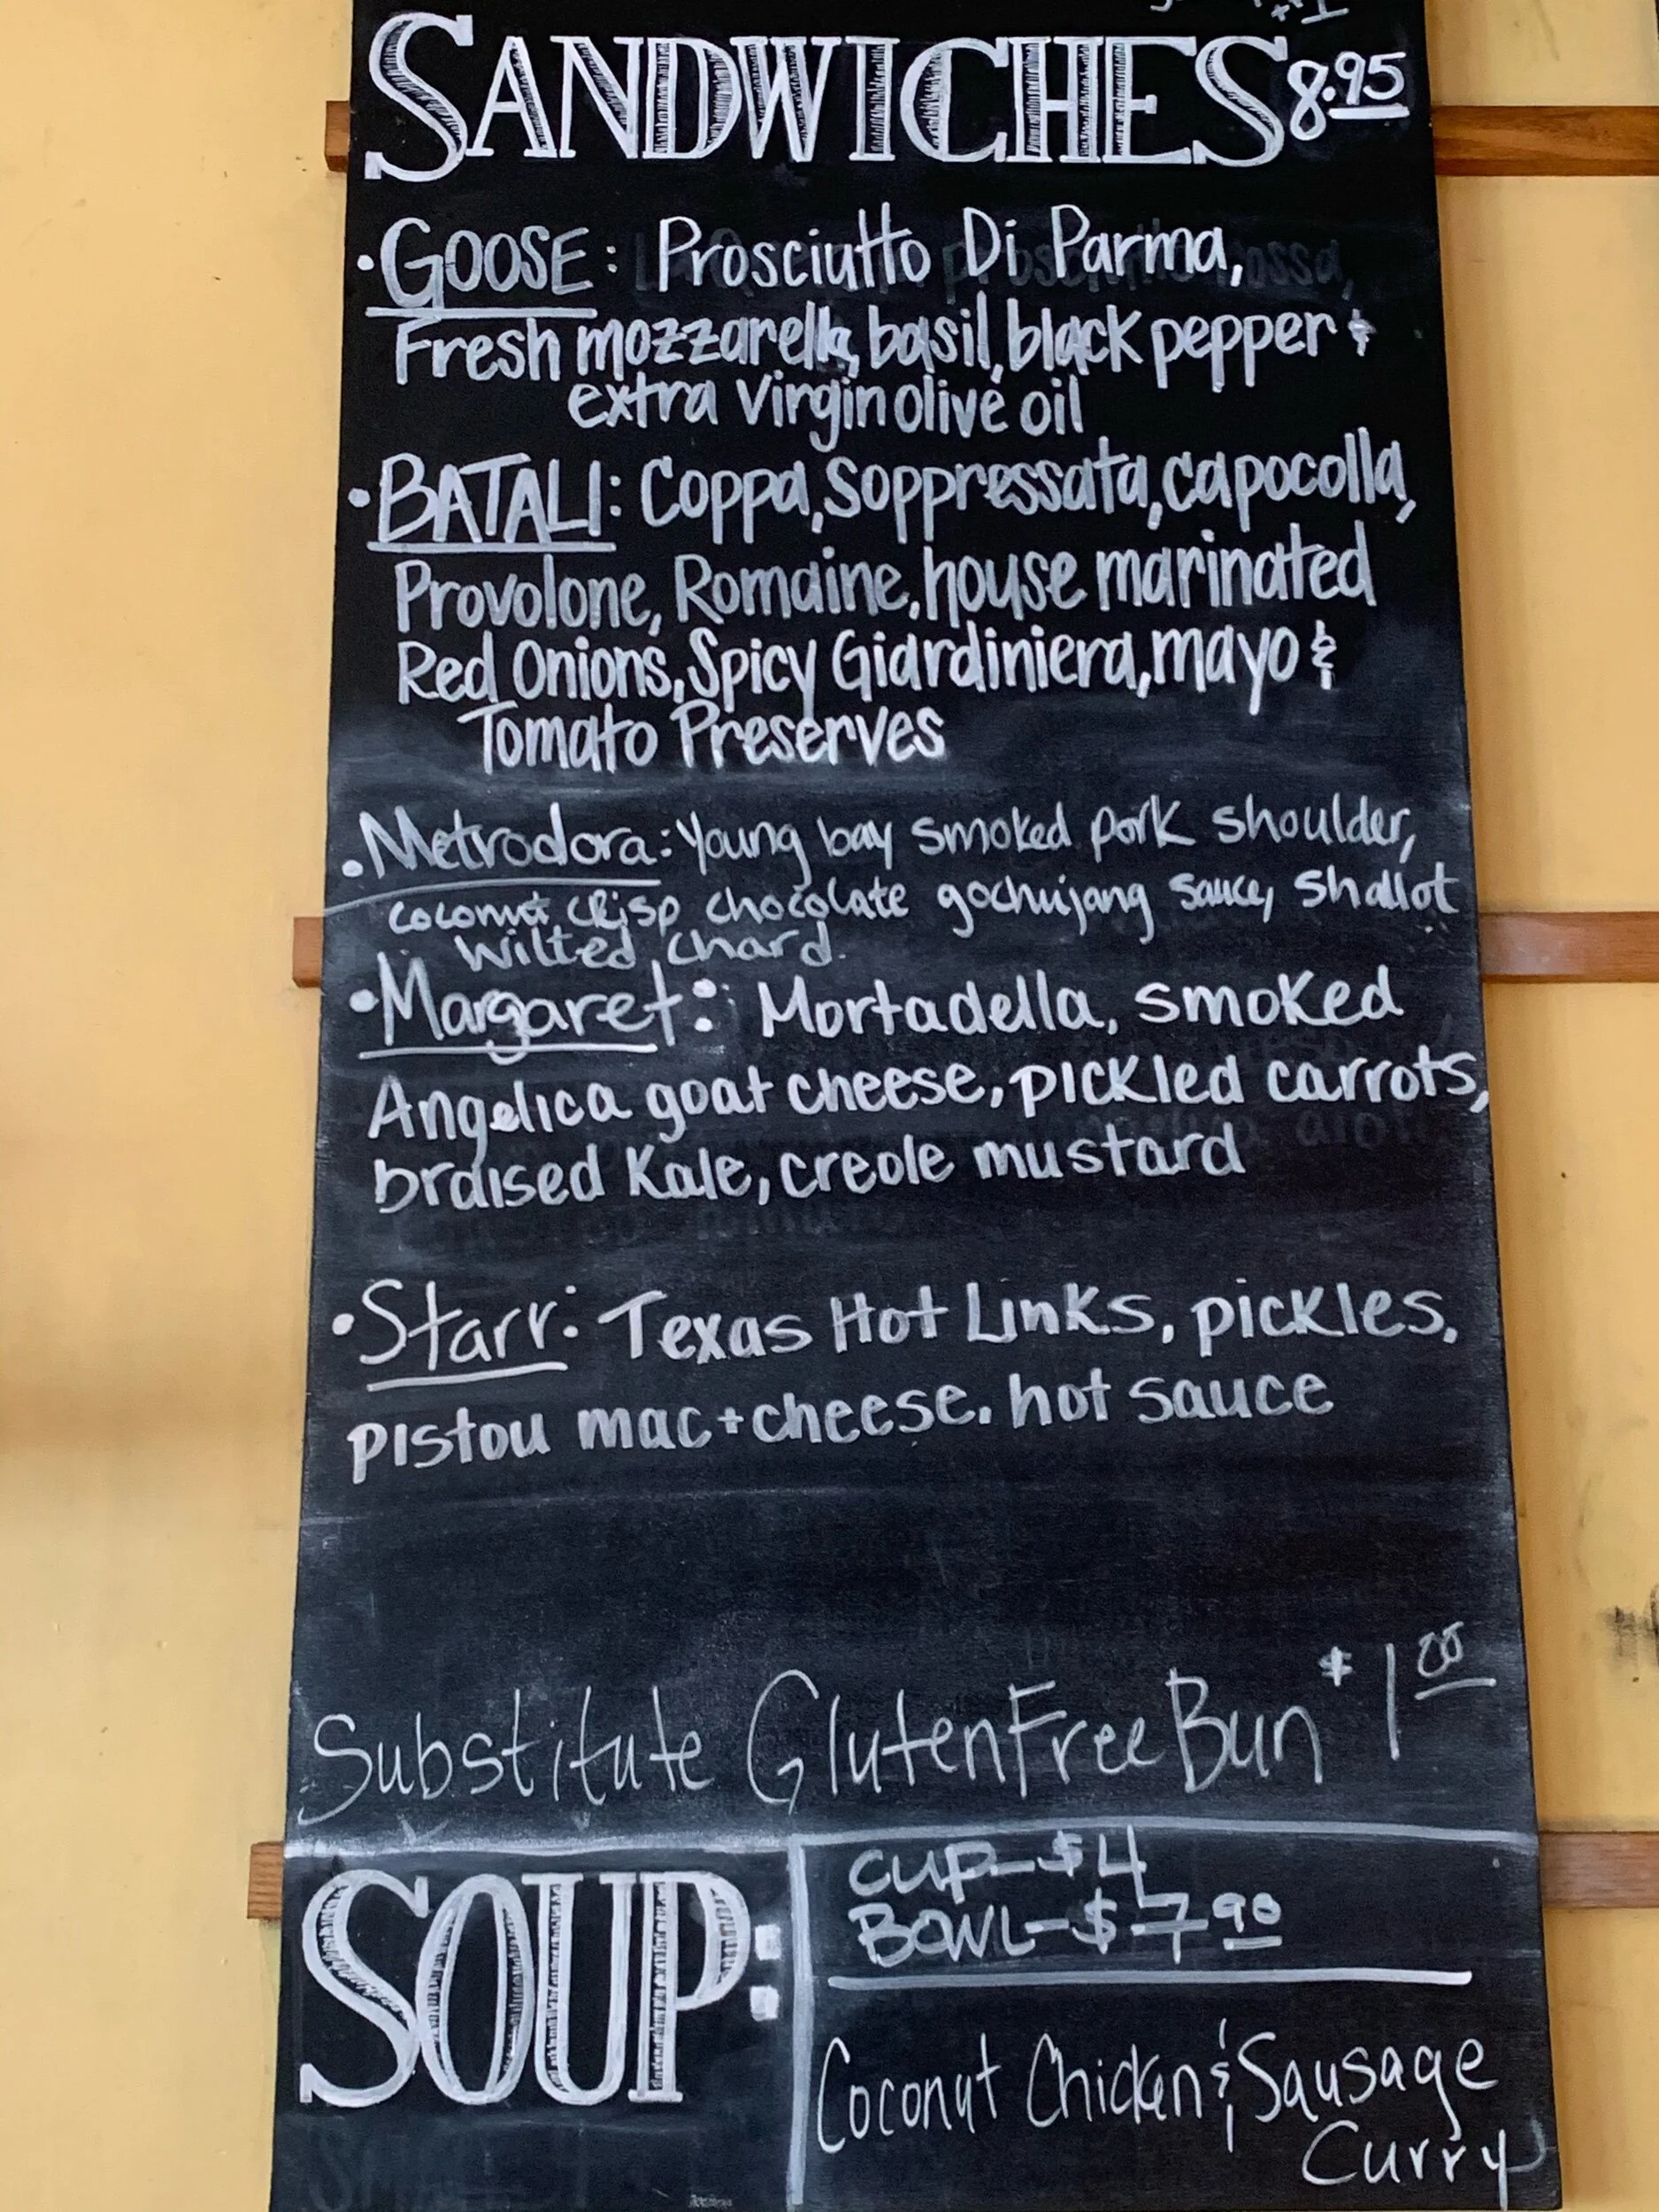 SANDWICHES 8.95
• GOOSE: Prosciutto Di Parma,
Fresh mozzarella, basil, black pepper &
extra virgin olive oil
• BATALI: Coppa, Soppressata, capocolla,
Provolone, Romaine, house marinated
Red Onions, Spicy Giardiniera, mayo &
Tomato Preserves
• Metrodora: Young bay smoked pork shoulder,
coconut crisp chocolate gochujang sauce, shallot
wilted chard.
• Margaret: Mortadella, smoked
Angelica goat cheese, pickled carrots,
braised Kale, creole mustard
• Starr: Texas Hot Links, pickles,
pistou mac + cheese. hot sauce
Substitute Gluten Free Bun $1.00
SOUP:
CUP-$4
BOWL-$7.90
Coconut Chicken & Sausage
Curry